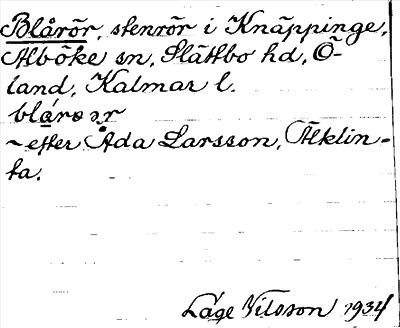 Blårör, stenrör i Knäppinge,
Alböke sn, Slättbo hd, Ö-
land, Kalmar l.
blåroər
~ efter Ada Larsson, Äleklin-
ta.
Låge Nilsson 1934